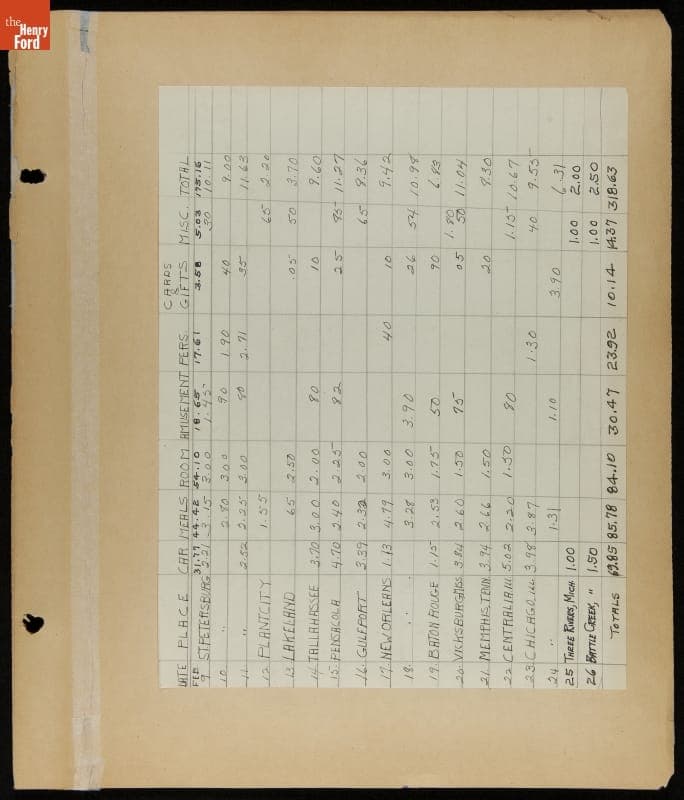 the
Henry
Ford
DATE PLACE CAR MEALS ROOM AMUSEMENT PERS. CARDS & GIFTS MISC. TOTAL
FEB 31.77 44.42 54.10 18.65 17.61 3.58 5.03 175.16
9 ST. PETERSBURG 2.21 3.15 3.00 1.45 30 10.11
10 " 2.80 3.00 90 1.90 40 9.00
11 " 2.52 2.25 3.00 80 2.71 35 11.63
12 PLANT CITY 1.55 65 2.20
13 LAKELAND 65 2.50 .05 50 3.70
14 TALLAHASSEE 3.70 3.00 2.00 80 10 9.60
15 PENSACOLA 4.70 2.40 2.25 82 25 85 11.27
16 GULFPORT 3.39 2.32 2.00 65 8.36
17 NEW ORLEANS 1.13 4.79 3.00 40 10 9.42
18 " 3.28 3.00 3.90 26 54 10.98
19 BATON ROUGE 1.15 2.53 1.75 50 90 6.83
20 VICKSBURG MISS. 3.84 2.60 1.50 75 05 1.80 50 11.04
21 MEMPHIS TENN. 3.94 2.66 1.50 20 8.30
22 CENTRALIA ILL 5.02 2.20 1.50 80 1.15 10.67
23 CHICAGO, ILL 3.98 3.87 1.30 40 9.55
24 " 1.31 1.10 3.90 6.31
25 THREE RIVERS, MICH 1.00 1.00 2.00
26 BATTLE CREEK, " 1.50 1.00 2.50
TOTALS 69.85 85.78 84.10 30.47 23.92 10.14 14.37 318.63